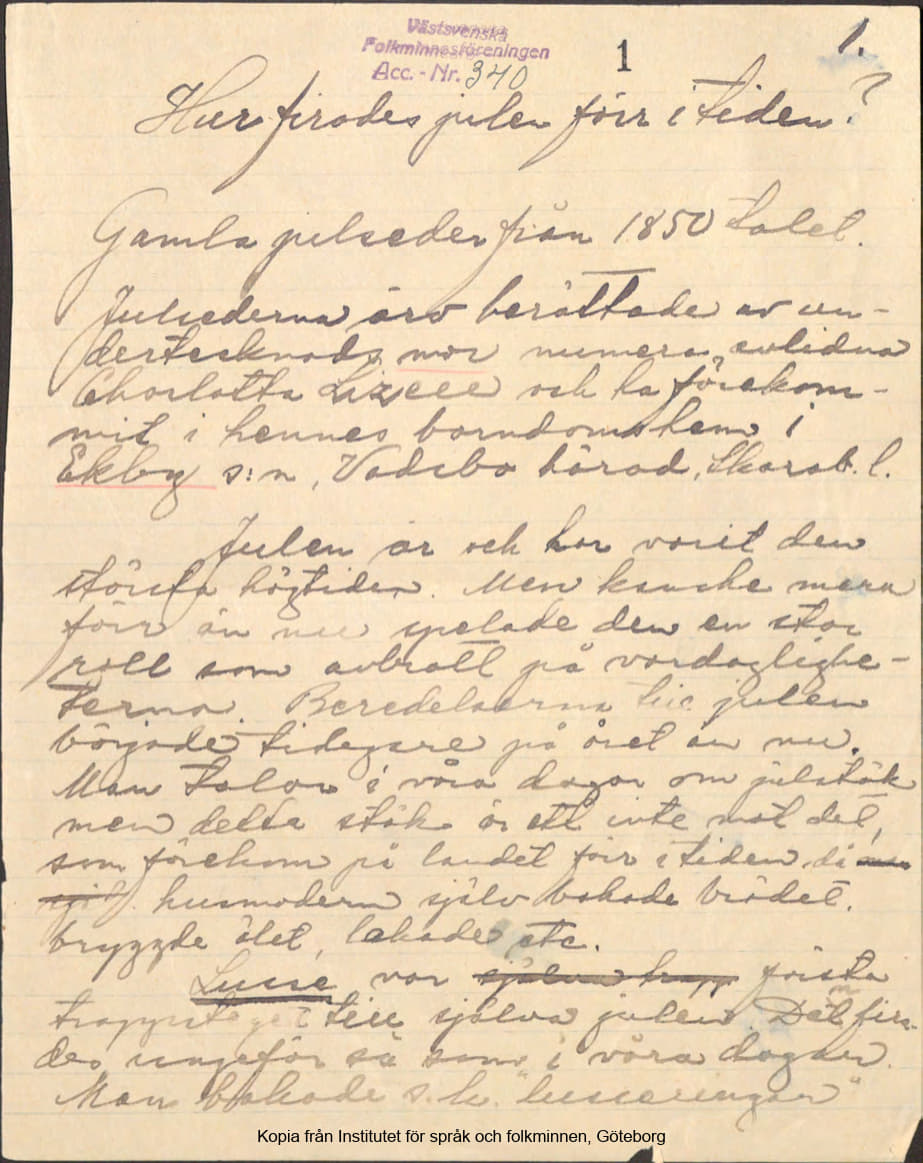 Västsvenska
Folkminnesföreningen
Acc. - Nr. 340
1
1.
Hur firades julen förr i tiden?
Gamla julseder från 1850 talet.
Julsederna äro berättade av un-
dertecknads mor numera avlidna
Charlotta och ha förekom-
mit i hennes barndomshem i
Ekby s:n, Vadsbo härad, Skarab. l.
Julen är och har varit den
största högtiden. Men kanske mera
förr än nu spelade den en stor
roll som avbrott på vardaglighe-
terna. Beredelserna till julen
började tidigare på året än nu.
Man talar i våra dagar om julstök
men detta stök är ett intet mot det,
som förekom på landet förr i tiden, då man
själ husmodern själv bakade brödet,
bryggde ölet, lakade etc.
Lusse var själva trapp första
trappsteget till själva julen. Den fira-
des ungefär så som i våra dagar.
Man bakade s.k. "lusseringar"
Kopia från Institutet för språk och folkminnen, Göteborg